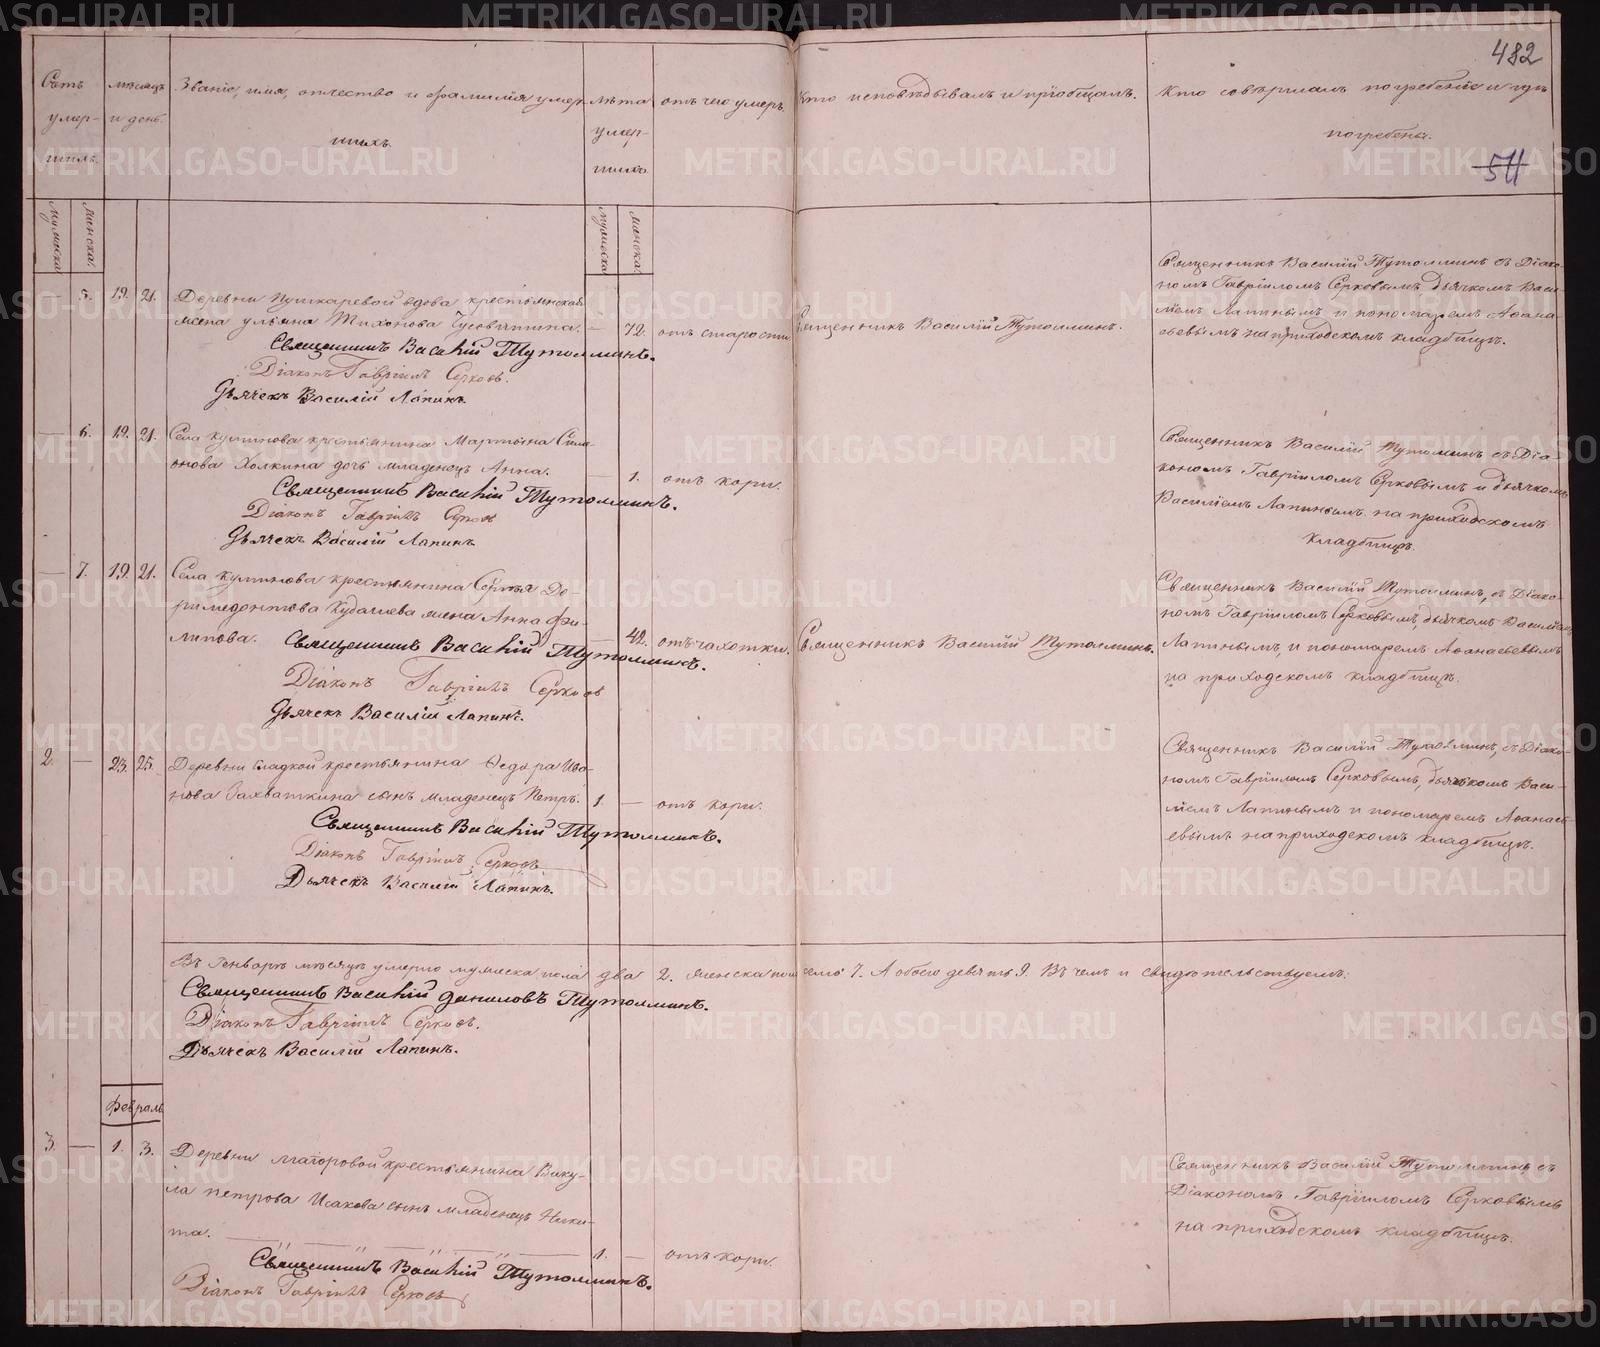 482
Счетъ умер-шихъ.
мѣсяцъ и день.
Званіе, имя, отчество и фамилія умер-
шихъ.
лѣта умер-шихъ
отъ чего умеръ.
Кто исповѣдывалъ и пріобщалъ.
Кто совершалъ погребеніе и гдѣ
погребены.
511
Мужеска
Женска.
мужеска
женска.
— 5. 19. 21. Деревни Пушкаревой вдова крестьянская
жена Ульяна Тихонова Чусовитина. — 72. отъ старости
Священникъ Василій Тутолминъ.
Священникъ Василій Тутолминъ съ Діако-
номъ Гавріиломъ Серковымъ дьячкомъ Васи-
ліемъ Лапинымъ и пономаремъ Аѳана-
сьевымъ на приходскомъ кладбищѣ.
Священникъ Василій Тутолминъ.
Діаконъ Гавріилъ Серковъ.
Дьячекъ Василій Лапинъ.
— 6. 19. 21. Села крестьянина Мартына Сила-
онова Холкина дочь младенецъ Анна. — 1. отъ кори.
Священникъ Василій Тутолминъ съ Діа
кономъ Гавріиломъ Серковымъ и дьячкомъ
Василіемъ Лапинымъ на приходскомъ
кладбищѣ.
Священникъ Василій Тутолминъ.
Діаконъ Гавріилъ Серковъ
Дьячекъ Василій Лапинъ
— 7. 19. 21. Села крестьянина Сергѣя До-
римедонтова жена Анна Фи-
липова. — 42. отъ чахотки.
Священникъ Василій Тутолминъ.
Священникъ Василій Тутолминъ, съ Діако-
номъ Гавріиломъ Серковымъ, дьячкомъ Василіемъ
Лапинымъ, и пономаремъ Аѳанасьевымъ
на приходскомъ кладбищѣ.
Священникъ Василій Тутолминъ.
Діаконъ Гавріилъ Серковъ
Дьячекъ Василій Лапинъ.
2. — 23. 25. Деревни Гладкой крестьянина Ѳедора Ива-
нова Захваткина сынъ младенецъ Петръ. 1. — отъ кори.
Священникъ Василій Тутолминъ, съ Діако-
номъ Гавріиломъ Серковымъ, дьячкомъ Васи-
ліемъ Лапинымъ и пономаремъ Аѳанась
евымъ на приходскомъ кладбищѣ.
Священникъ Василій Тутолминъ.
Діаконъ Гавріилъ Серковъ
Дьячекъ Василій Лапинъ.
Въ Генварѣ мѣсяцѣ умерло мужеска пола два 2. женска пола семь 7. А обоего девять 9. Въ чемъ и свидѣтельствуемъ:
Священникъ Василій Даниловъ Тутолминъ.
Діаконъ Гавріилъ Серковъ.
Дьячекъ Василій Лапинъ.
Февраль
3. — 1. 3. Деревни крестьянина Вику-
ла Петрова Исакова сынъ младенецъ Ники-
та. 1. — отъ кори.
Священникъ Василій Тутолминъ съ
Діакономъ Гавріиломъ Серковымъ
на приходскомъ кладбищѣ.
Священникъ Василій Тутолминъ.
Діаконъ Гавріилъ Серковъ
METRIKI.GASO-URAL.RU